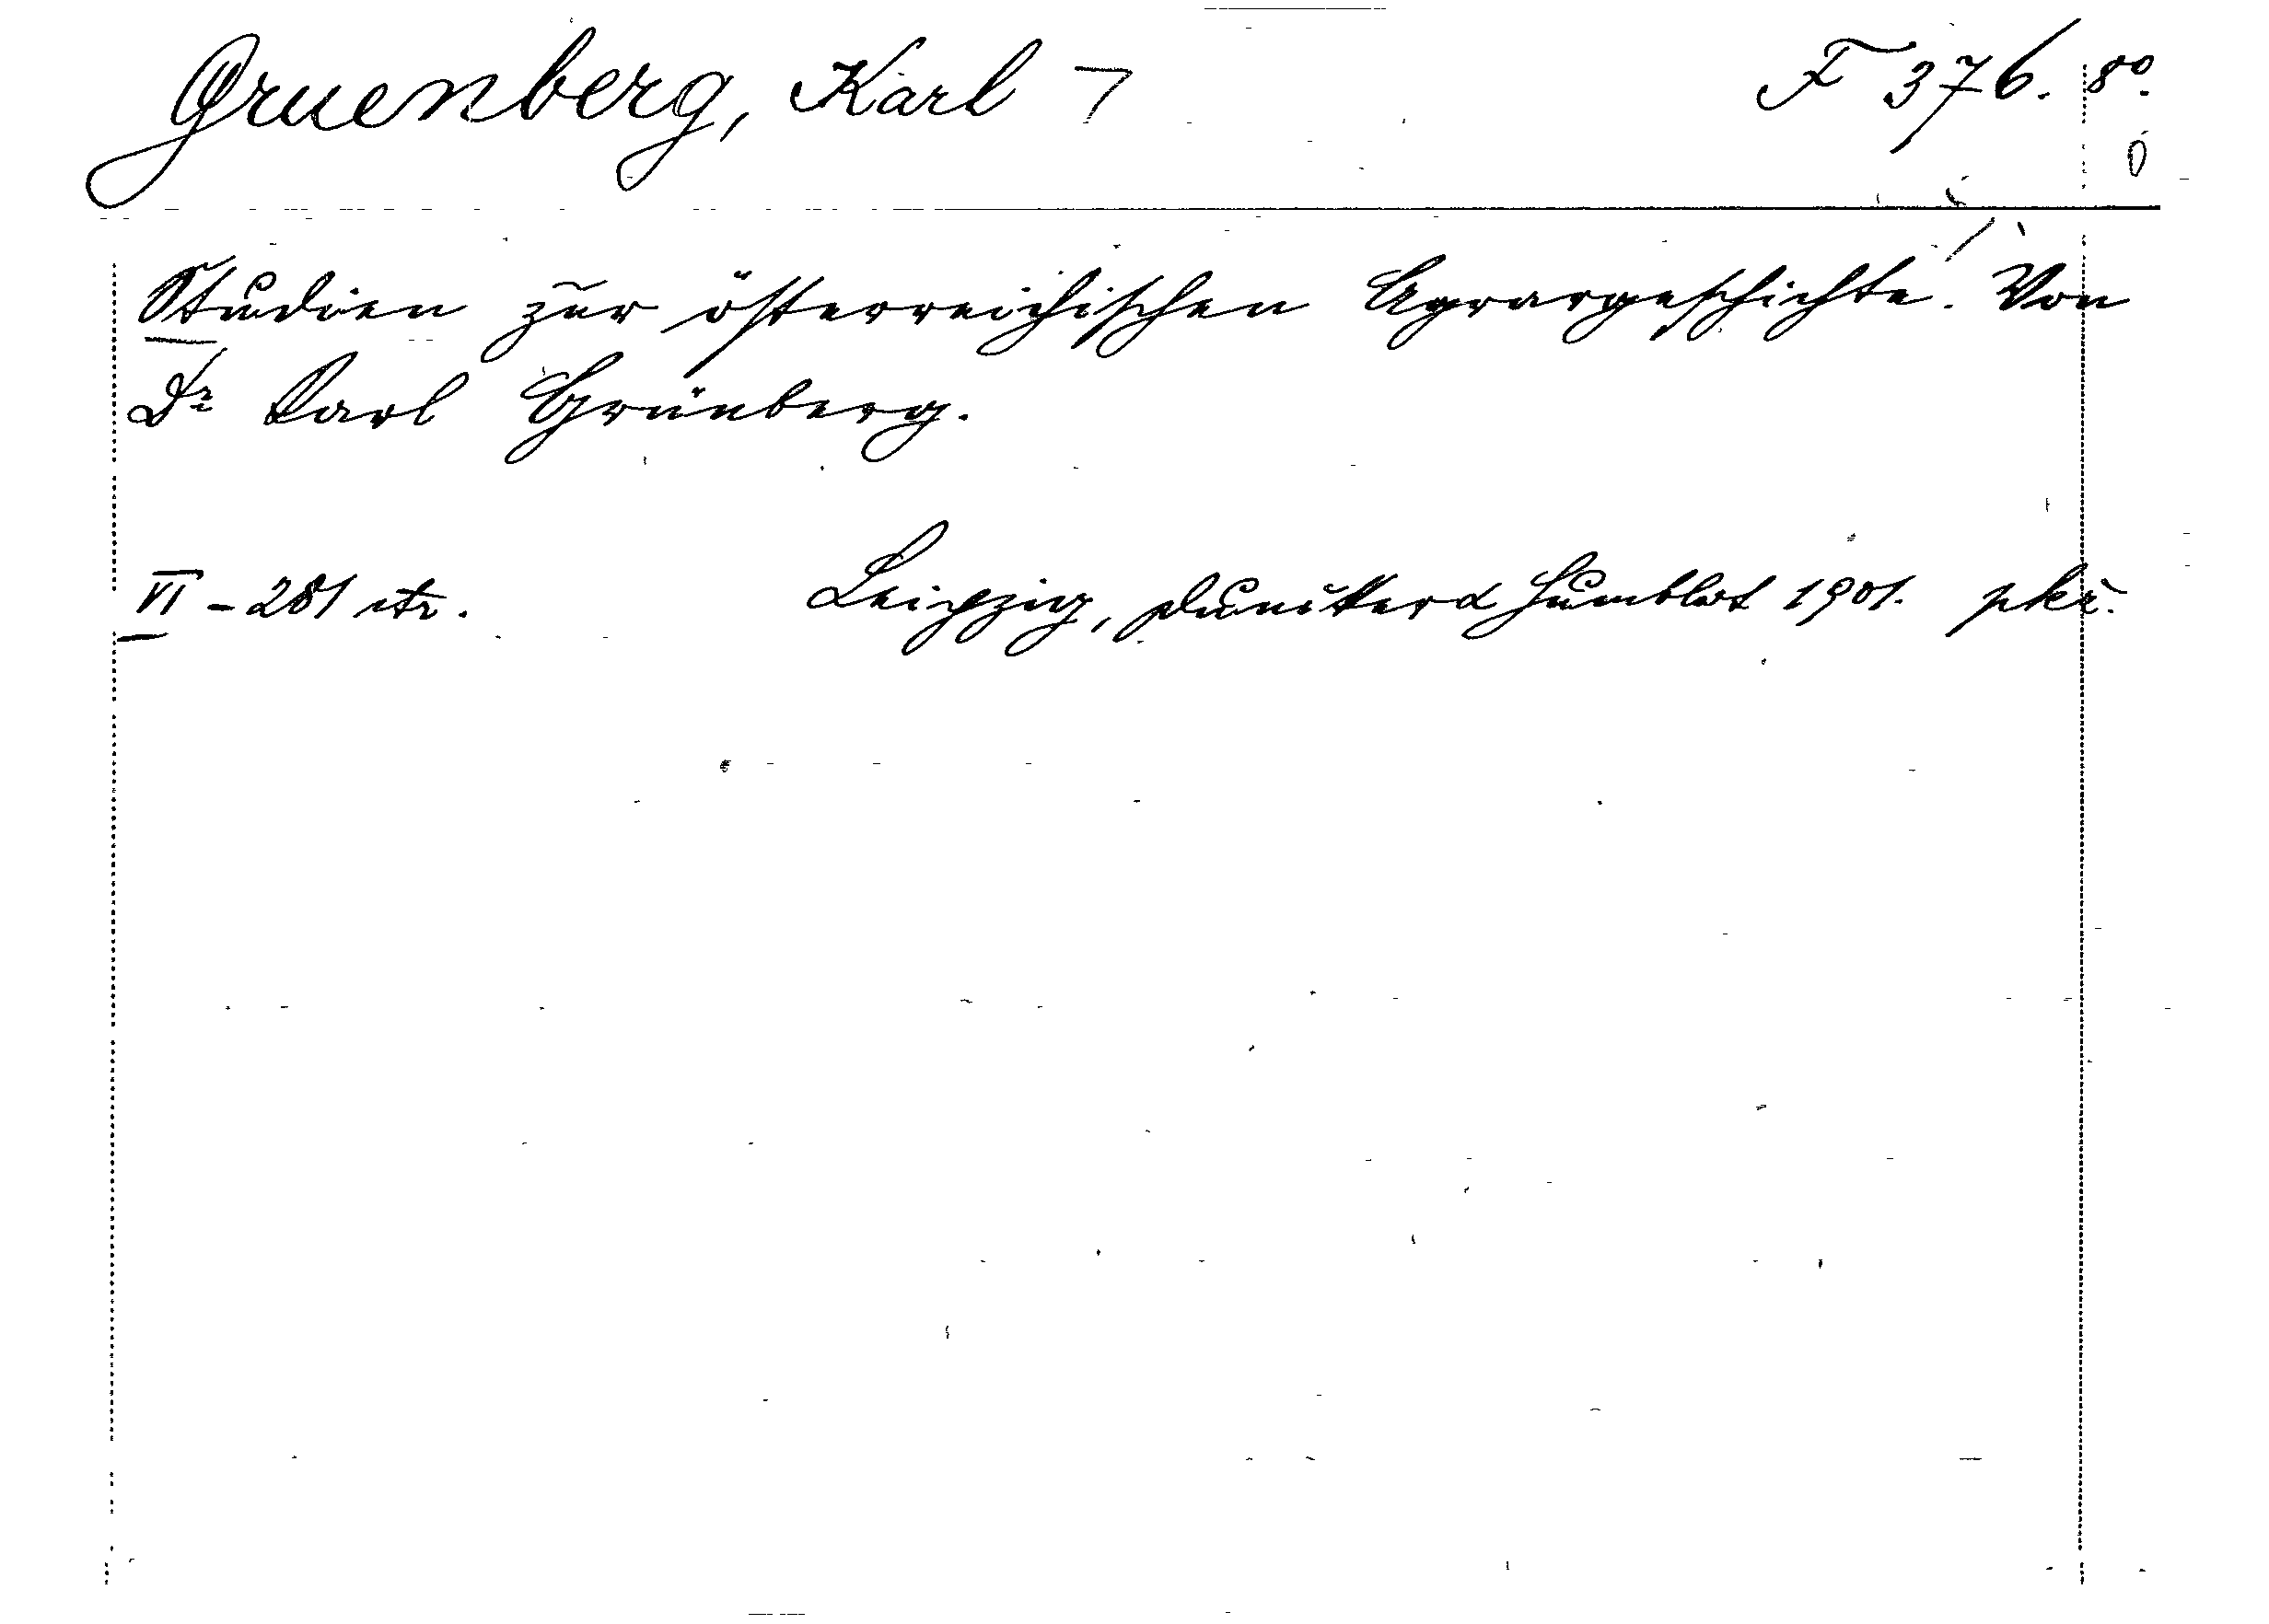 Gruenberg, Karl F 376. 8º.
Studien zur österreichischen Agrargeschichte. Von
Dr Karl Grünberg.
VI - 281 str. Leipzig, Duncker & Humblot 1901. pkż.